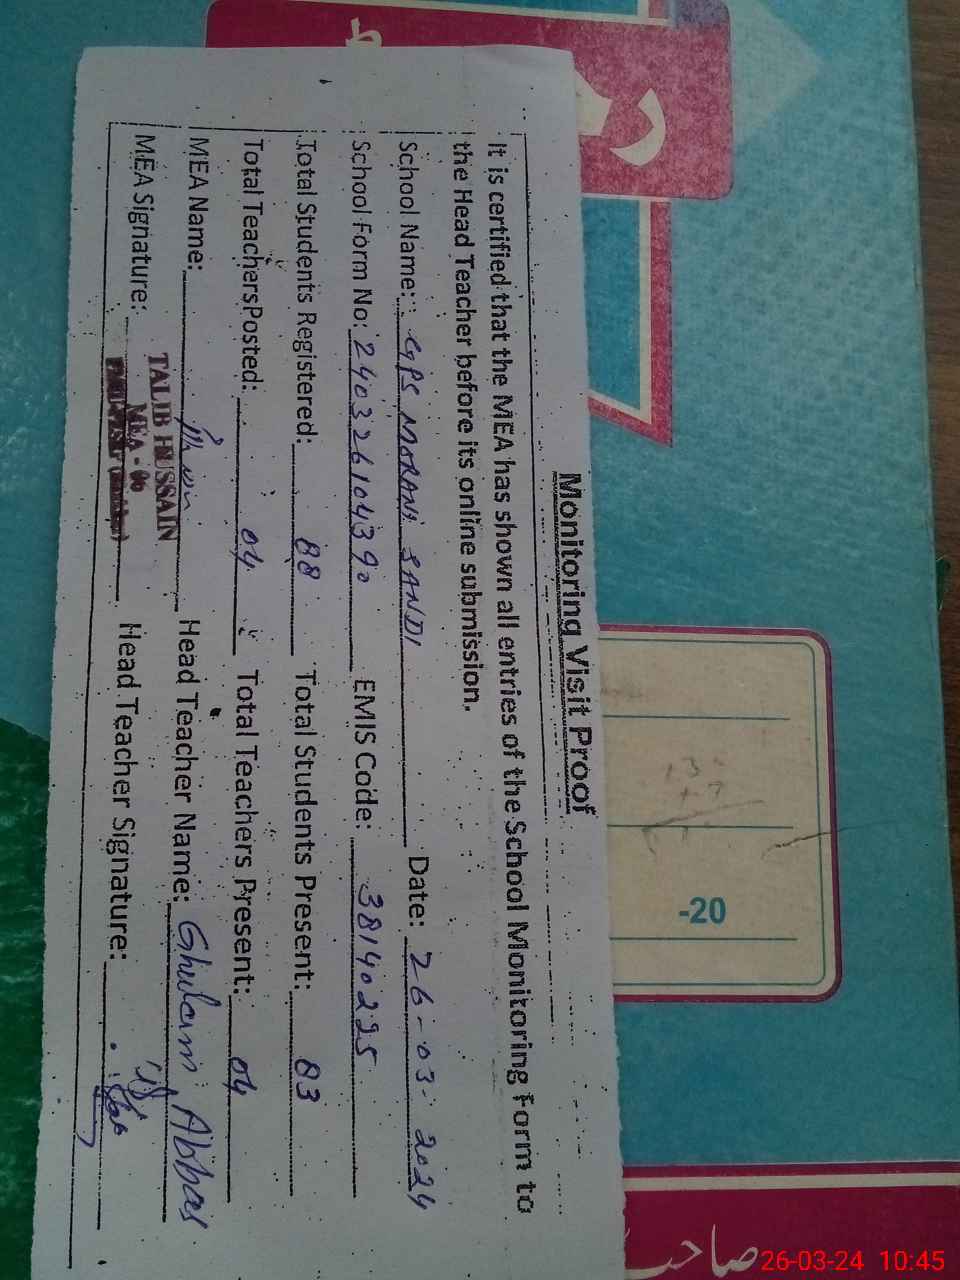 Monitoring Visit Proof
It is certified that the MEA has shown all entries of the School Monitoring Form to
the Head Teacher before its online submission.
School Name: GPS MORANI SANDI Date: 26-03-2024
School Form No: 24032610439０ EMIS Code: 38140225
Total Students Registered: 88 Total Students Present: 83
Total Teachers Posted: 04 Total Teachers Present: 04
MEA Name: Head Teacher Name: Ghulam Abbas
TALIB HUSSAIN
MEA Signature: MEA - 06 Head Teacher Signature:
-20
صاحب
26-03-24 10:45